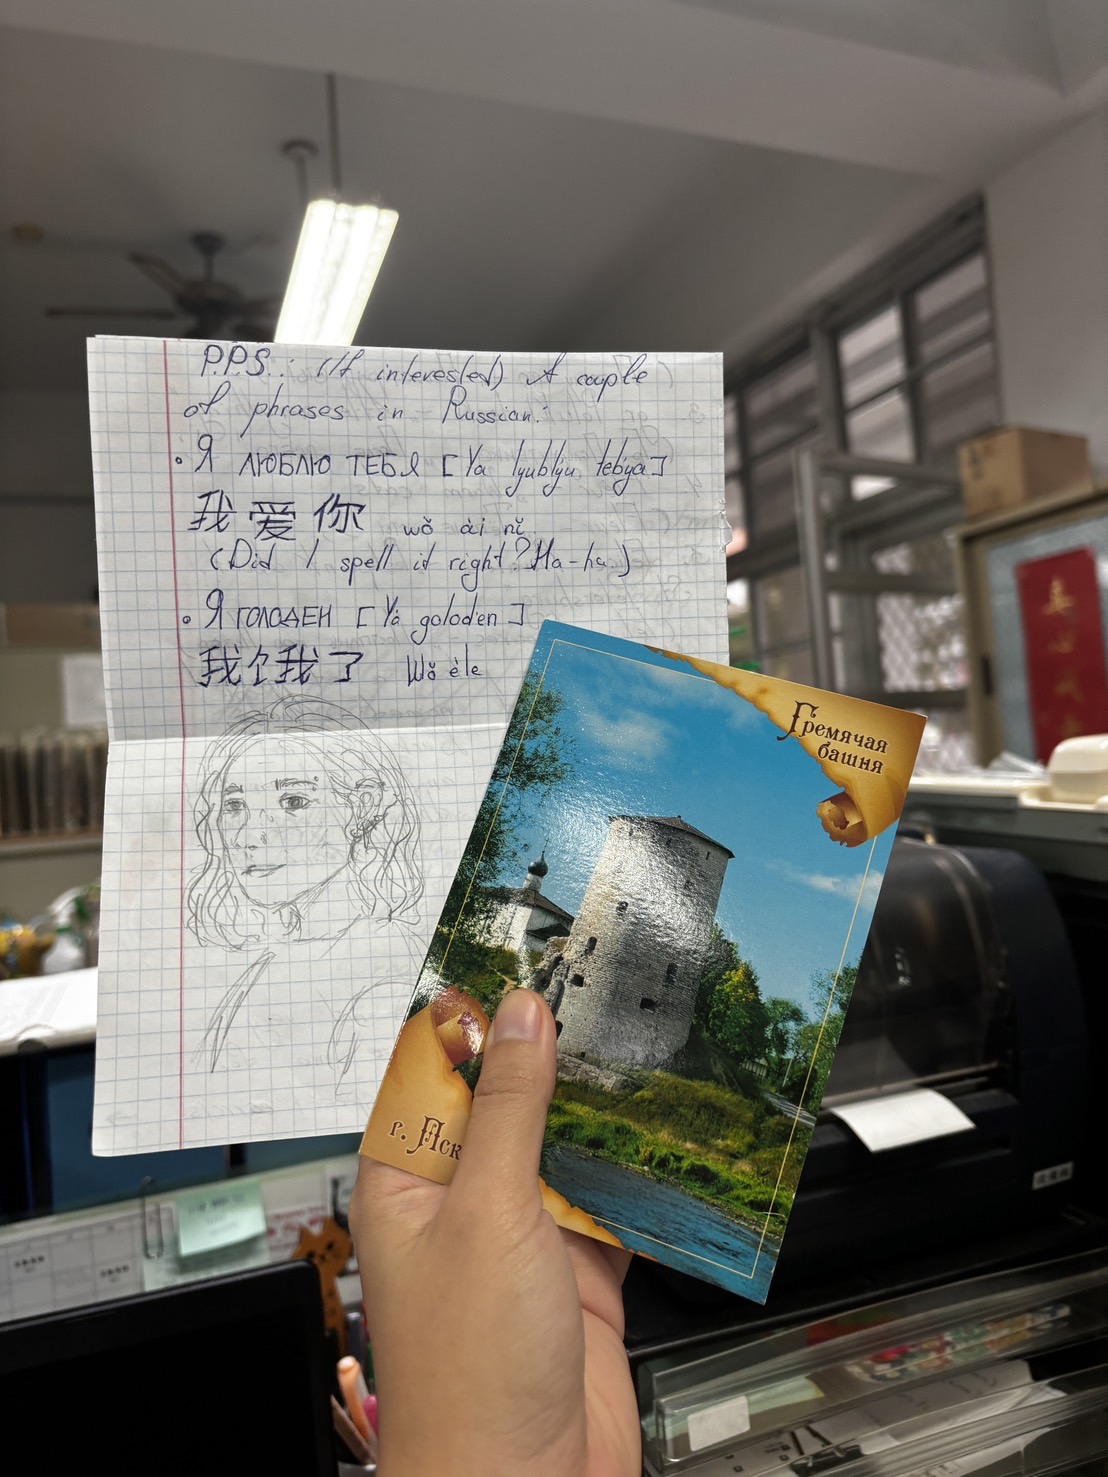 P.P.S.: (If interested) A couple
of phrases in Russian:
• Я ЛЮБЛЮ ТЕБЯ [Ya lyublyu tebya]
我爱你 wǒ ài nǐ
(Did I spell it right? Ha-ha)
• Я ГОЛОДЕН [Ya goloden]
我饿了 Wǒ èle
Гремячая
башня
г. Пск